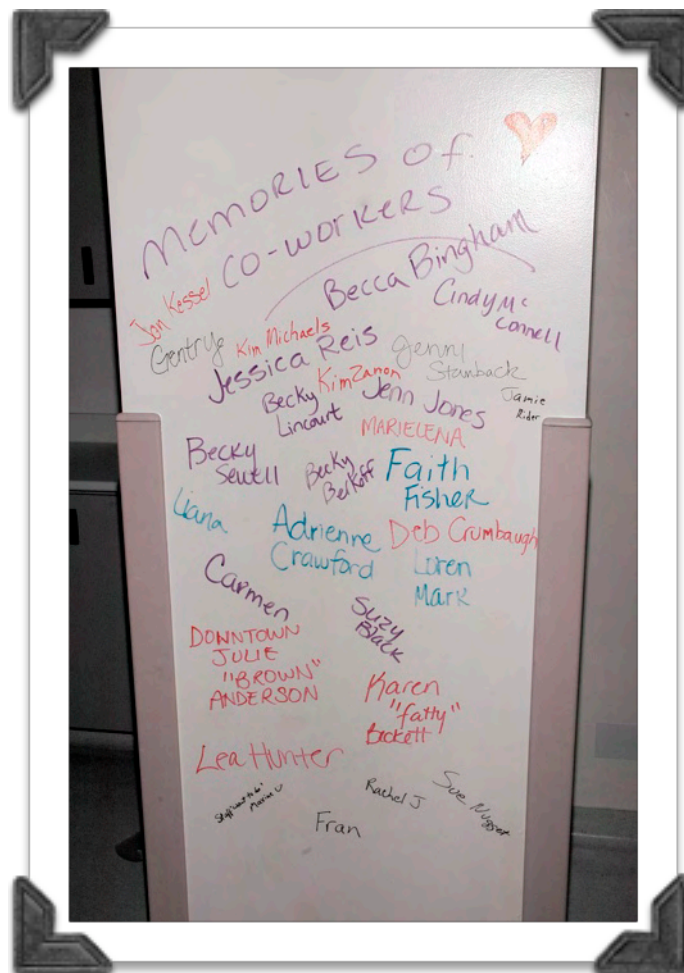 MEMORIES OF
CO-WORKERS
Becca Bingham
Cindy Mc
Connell
Jan Kessel
Gentry
Kim Michaels
Jessica Reis
Jenni
Stanback
Kim Zanon
Becky
Lincourt
Jenn Jones
Jamie
Rider
MARIELENA
Becky
Sewell
Becky
Berkoff
Faith
Fisher
Liana
Adrienne
Crawford
Deb Crumbaugh
Loren
Mark
Carmen
Suzy
Black
DOWNTOWN
JULIE
"BROWN"
ANDERSON
Karen
"fatty"
Beckett
Lea Hunter
Rachel J
Sue Nugget
Fran